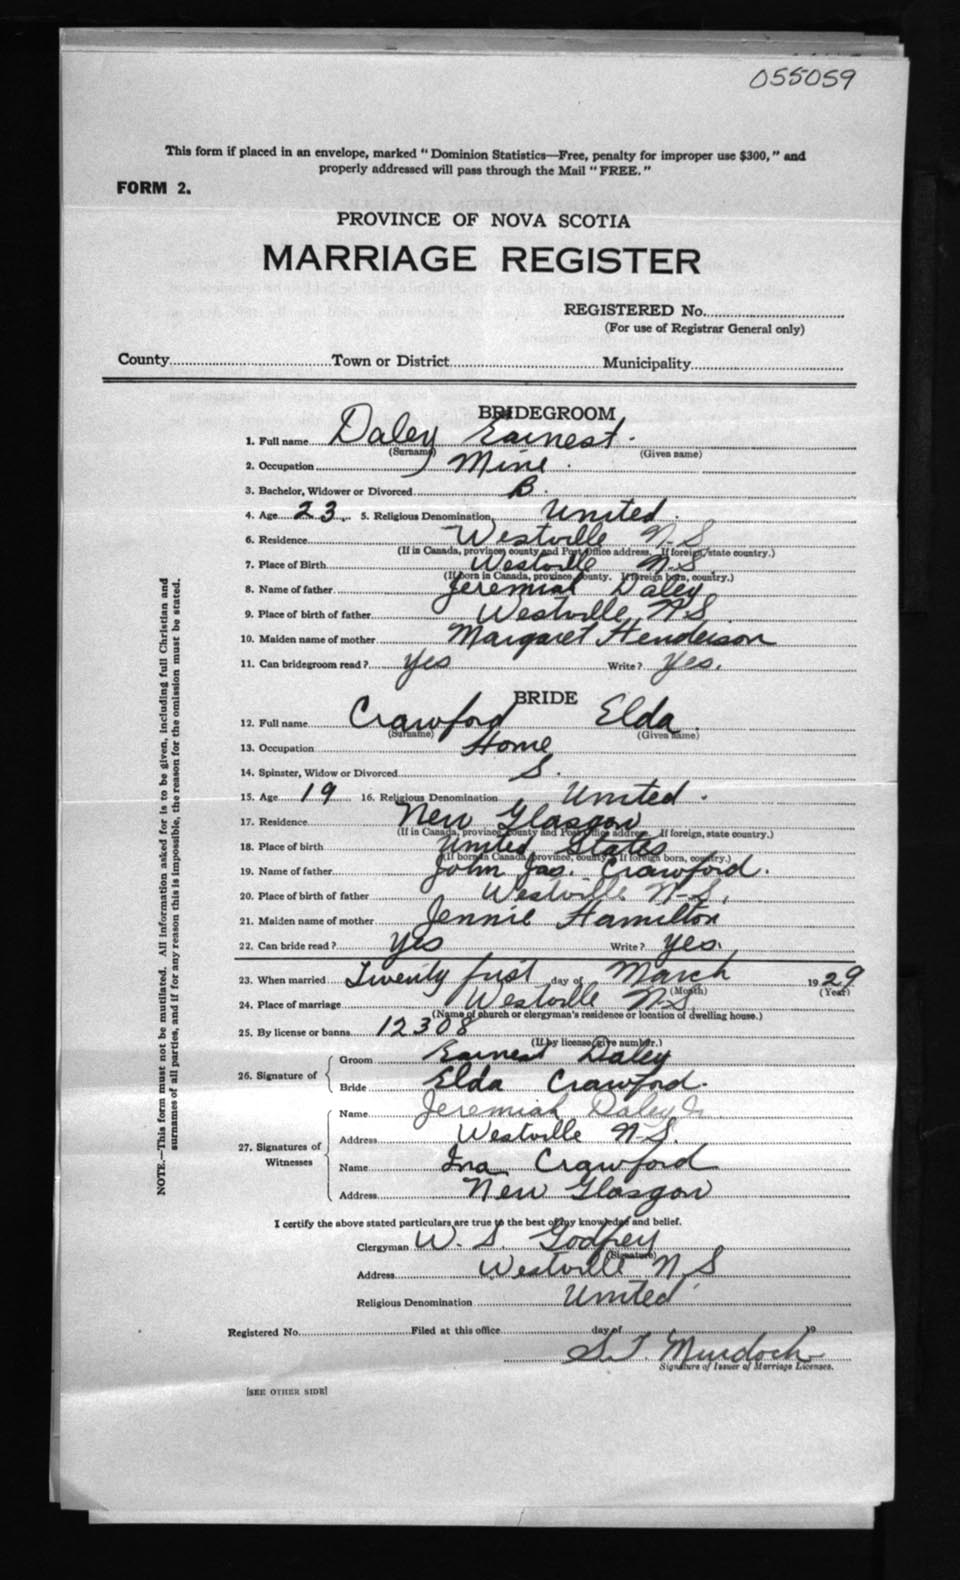 055059
This form if placed in an envelope, marked "Dominion Statistics—Free, penalty for improper use $300," and
properly addressed will pass through the Mail "FREE."
FORM 2.
PROVINCE OF NOVA SCOTIA
MARRIAGE REGISTER
REGISTERED No.
(For use of Registrar General only)
County Town or District Municipality
BRIDEGROOM
1. Full name Daley Earnest.
(Surname) (Given name)
2. Occupation Mine.
3. Bachelor, Widower or Divorced B.
4. Age 23. 5. Religious Denomination United.
6. Residence Westville N.S
(If in Canada, province, county and Post Office address. If foreign, state country.)
7. Place of Birth Westville N.S.
(If born in Canada, province, county. If foreign born, country.)
8. Name of father Jeremiah Daley
9. Place of birth of father Westville N.S.
10. Maiden name of mother Margaret Henderson
11. Can bridegroom read? Yes Write? Yes.
BRIDE
12. Full name Crawford Elda.
(Surname) (Given name)
13. Occupation Home
14. Spinster, Widow or Divorced S.
15. Age 19 16. Religious Denomination United.
17. Residence New Glasgow
(If in Canada, province, county and Post Office address. If foreign, state country.)
18. Place of birth United States
(If born in Canada, province, county. If foreign born, country.)
19. Name of father John Jas. Crawford.
20. Place of birth of father Westville N.S.
21. Maiden name of mother Jennie Hamilton
22. Can bride read? Yes Write? Yes.
23. When married Twenty first day of March 1929
(Month) (Year)
24. Place of marriage Westville N.S.
(Name of church or clergyman's residence or location of dwelling house.)
25. By license or banns 12308
(If by license, give number.)
26. Signature of
Groom Earnest Daley
Bride Elda Crawford.
27. Signatures of Witnesses
Name Jeremiah Daley Jr.
Address Westville N.S.
Name Ina Crawford
Address New Glasgow
I certify the above stated particulars are true to the best of my knowledge and belief.
Clergyman W. S. Godfrey
(Signature)
Address Westville N S
Religious Denomination United
Registered No. Filed at this office day of 19
S.T. Murdoch
Signature of Issuer of Marriage Licenses.
[SEE OTHER SIDE]
NOTE.—This form must not be mutilated. All information asked for is to be given, including full Christian and
surnames of all parties, and if for any reason this is impossible, the reason for the omission must be stated.